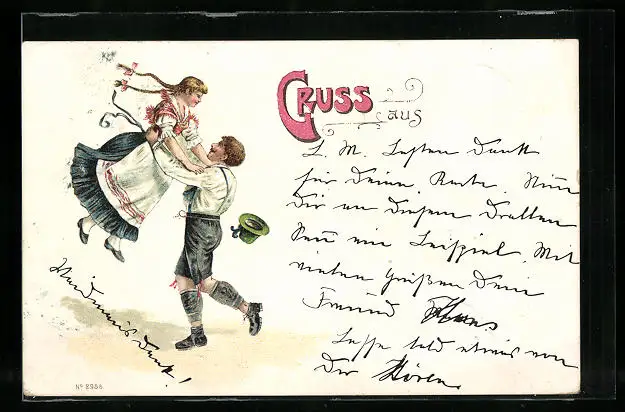 GRUSS
aus
L. M. Besten Dank
für Deine Karte. Nimm
Dir an diesem Dratten
Senn ein Beispiel. Mit
vielen Grüßen Dein
Freund Hans
Lasse bald etwas von
Dir Hören
Weidmanns Dank!
No 8966.